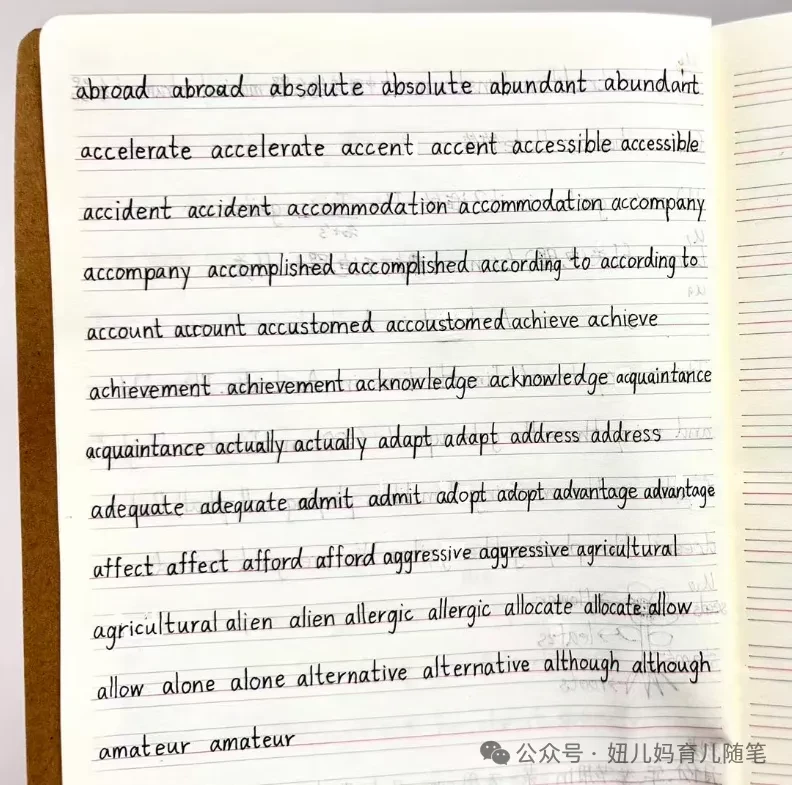 abroad abroad absolute absolute abundant abundant
accelerate accelerate accent accent accessible accessible
accident accident accommodation accommodation accompany
accompany accomplished accomplished according to according to
account account accustomed accoustomed achieve achieve
achievement achievement acknowledge acknowledge acquaintance
acquaintance actually actually adapt adapt address address
adequate adequate admit admit adopt adopt advantage advantage
affect affect afford afford aggressive aggressive agricultural
agricultural alien alien allergic allergic allocate allocate allow
allow alone alone alternative alternative although although
amateur amateur
公众号·妞儿妈育儿随笔